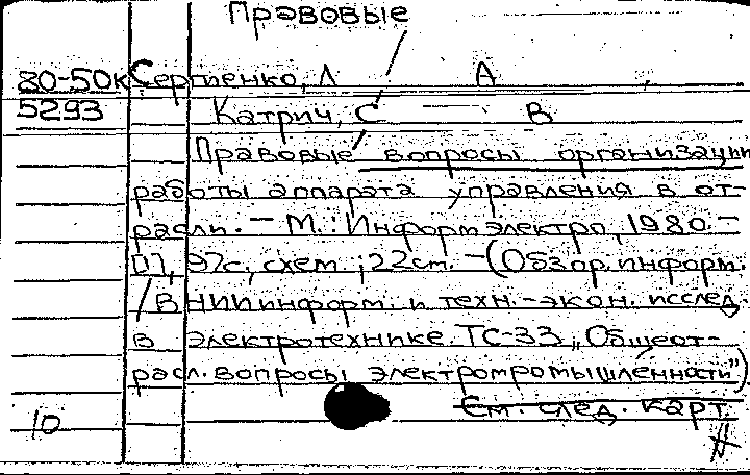 Правовые
80-50к Сергиенко, Л А
5293 Катрич, С В
Правовые вопросы организации
работы аппарата управления в от-
расли. — М.: Информэлектро, 1980. —
97с., схем.; 22см. — (Обзор. информ.
/ВНИИинформ. и техн.-экон. исслед.
в электротехнике. ТС-33 „Общеот-
расл. вопросы электропромышленности")
См. след. карт.
10